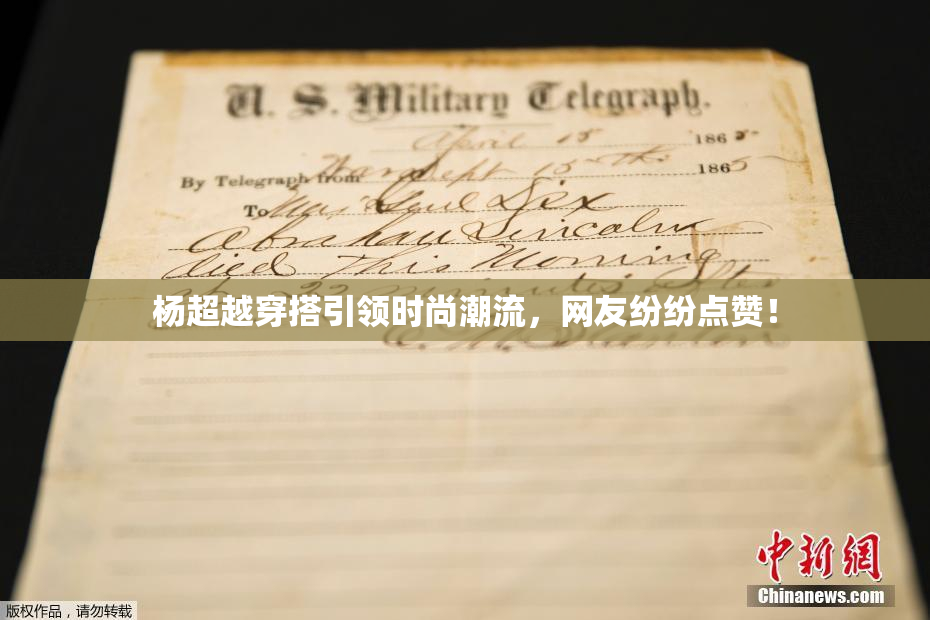 U. S. Military Telegraph.
April 15 1865
By Telegraph from War Dept 15th 1865
To Maj Genl Dix
Abraham Lincoln
died This Morning
at 22 minutes after
杨超越穿搭引领时尚潮流，网友纷纷点赞！
E. M. Stanton
中新网
Chinanews.com
版权作品，请勿转载